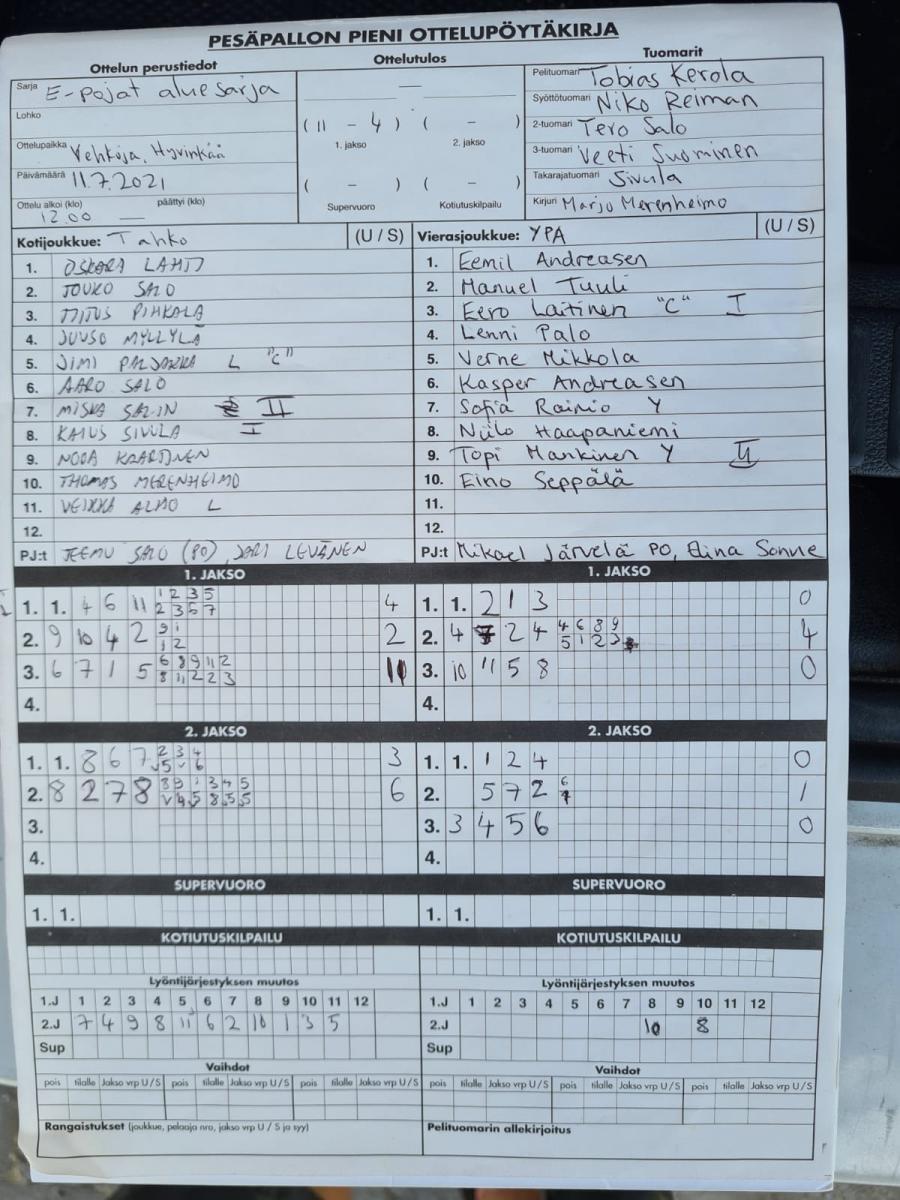 PESÄPALLON PIENI OTTELUPÖYTÄKIRJA
Ottelun perustiedot
Sarja E-pojat aluesarja
Lohko
Ottelupaikka Vehkoja, Hyvinkää
Päivämäärä 11.7.2021
Ottelu alkoi (klo) päättyi (klo)
12.00 —
Ottelutulos
—
( 11 - 4 ) ( - )
1. jakso 2. jakso
( - ) ( - )
Supervuoro Kotiutuskilpailu
Tuomarit
Pelituomari Tobias Kerola
Syöttötuomari Niko Reiman
2-tuomari Tero Salo
3-tuomari Veeti Suominen
Takarajatuomari Sivula
Kirjuri Marjo Merenheimo
Kotijoukkue: Tahko (U / S)
1. OSKARA LAHTI
2. JOUKO SALO
3. TIITUS PIHKALA
4. JUUSO MYLLYLÄ
5. JIMI L "C"
6. AARO SALO
7. MISKA SALIN II
8. KAIUS SIVULA I
9. NOOA KAARTINEN
10. THOMAS MERENHEIMO
11. VEIKKA ALHO L
12.
PJ:t TEEMU SALO (PO), JARI LEVÄNEN
Vierasjoukkue: YPA (U / S)
1. Eemil Andreasen
2. Manuel Tuuli
3. Eero Laitinen "C" I
4. Lenni Palo
5. Verne Mikkola
6. Kasper Andreasen
7. Sofia Rainio Y
8. Niilo Haapaniemi
9. Topi Mankinen Y II
10. Eino Seppälä
11.
12.
PJ:t Mikael Järvelä PO, Elina Sonne
1. JAKSO
1. 1. 4 6 11 1 2 3 5 4
2 3 6 7
2. 9 10 4 2 9 1 2
1 2
3. 6 7 1 5 6 8 9 11 2 11
8 11 2 2 3
4.
1. JAKSO
1. 1. 2 1 3 0
2. 4 7 2 4 4 6 8 9 4
5 1 2 3
3. 10 11 5 8 0
4.
2. JAKSO
1. 1. 8 6 7 2 3 4 3
v 5 v 6
2. 8 2 7 8 8 9 1 3 4 5 6
v 4 5 8 5 5
3.
4.
2. JAKSO
1. 1. 1 2 4 0
2. 5 7 2 6 1
7
3. 3 4 5 6 0
4.
SUPERVUORO
1. 1.
SUPERVUORO
1. 1.
KOTIUTUSKILPAILU
KOTIUTUSKILPAILU
Lyöntijärjestyksen muutos
1.J 1 2 3 4 5 6 7 8 9 10 11 12
2.J 7 4 9 8 11 6 2 10 1 3 5
Sup
Lyöntijärjestyksen muutos
1.J 1 2 3 4 5 6 7 8 9 10 11 12
2.J 10 8
Sup
Vaihdot
pois tilalle Jakso vrp U/S pois tilalle Jakso vrp U/S pois tilalle Jakso vrp U/S
Vaihdot
pois tilalle Jakso vrp U/S pois tilalle Jakso vrp U/S pois tilalle Jakso vrp U/S
Rangaistukset (joukkue, pelaaja nro, jakso vrp U / S ja syy)
Pelituomarin allekirjoitus